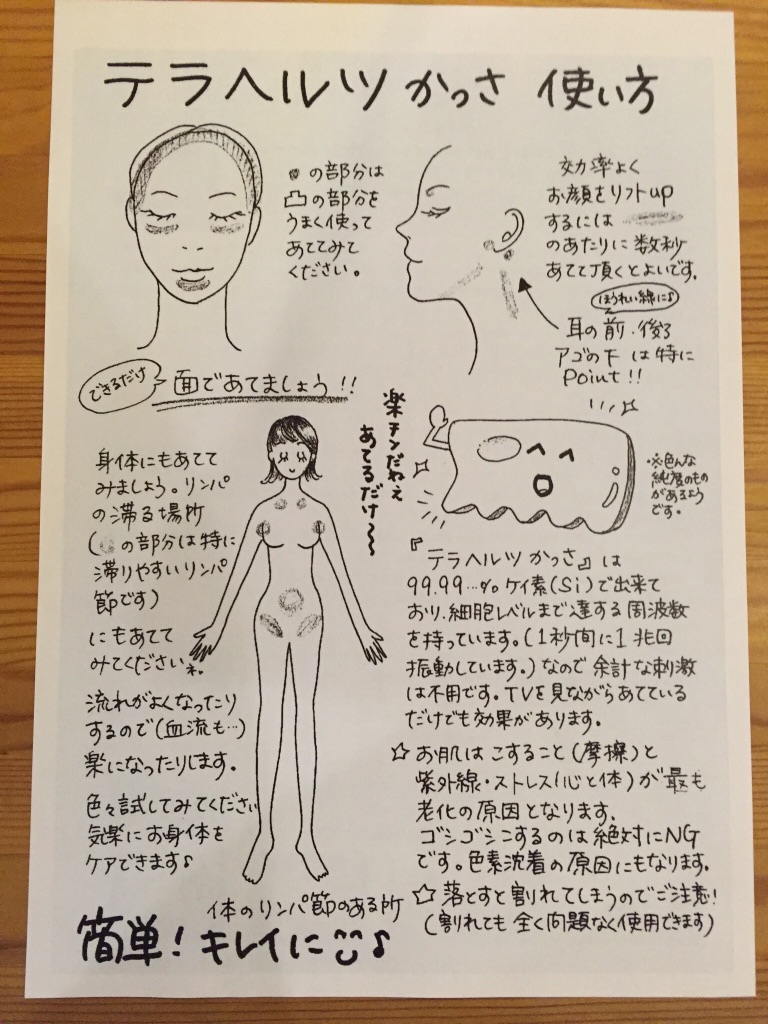 テラヘルツ かっさ 使い方
の部分は
凸の部分を
うまく使って
あててみて
ください。
効率よく
お顔をリフトup
するには
のあたりに 数秒
あてて頂くとよいです。
ほうれい線に♪
耳の前・後ろ
アゴの下 は特に
Point!!
できるだけ
面であてましょう!!
楽チンだねぇ
あてるだけ〜〜
・※色んな
純度のもの
があるよう
です。
身体にもあてて
みましょう。リンパ
の滞る場所
( の部分は特に
滞りやすいリンパ
節です)
にもあてて
みてくださいネ。
流れがよくなったり
するので(血流も…)
楽になったりします。
色々試してみてください
気楽にお身体を
ケアできます♪
『テラヘルツ かっさ』は
99.99…% ケイ素(Si)で出来て
おり、細胞レベルまで達する周波数
を持っています。(1秒間に1兆回
振動しています。)なので 余計な刺激
は不用です。TVを見ながらあてている
だけでも効果があります。
☆ お肌は こすること(摩擦)と
紫外線・ストレス(心と体)が 最も
老化の原因となります。
ゴシゴシこするのは絶対にNG
です。色素沈着の原因にもなります。
☆ 落とすと割れてしまうのでご注意!
(割れても 全く問題なく使用できます)
体のリンパ節のある所
簡単! キレイに ♪